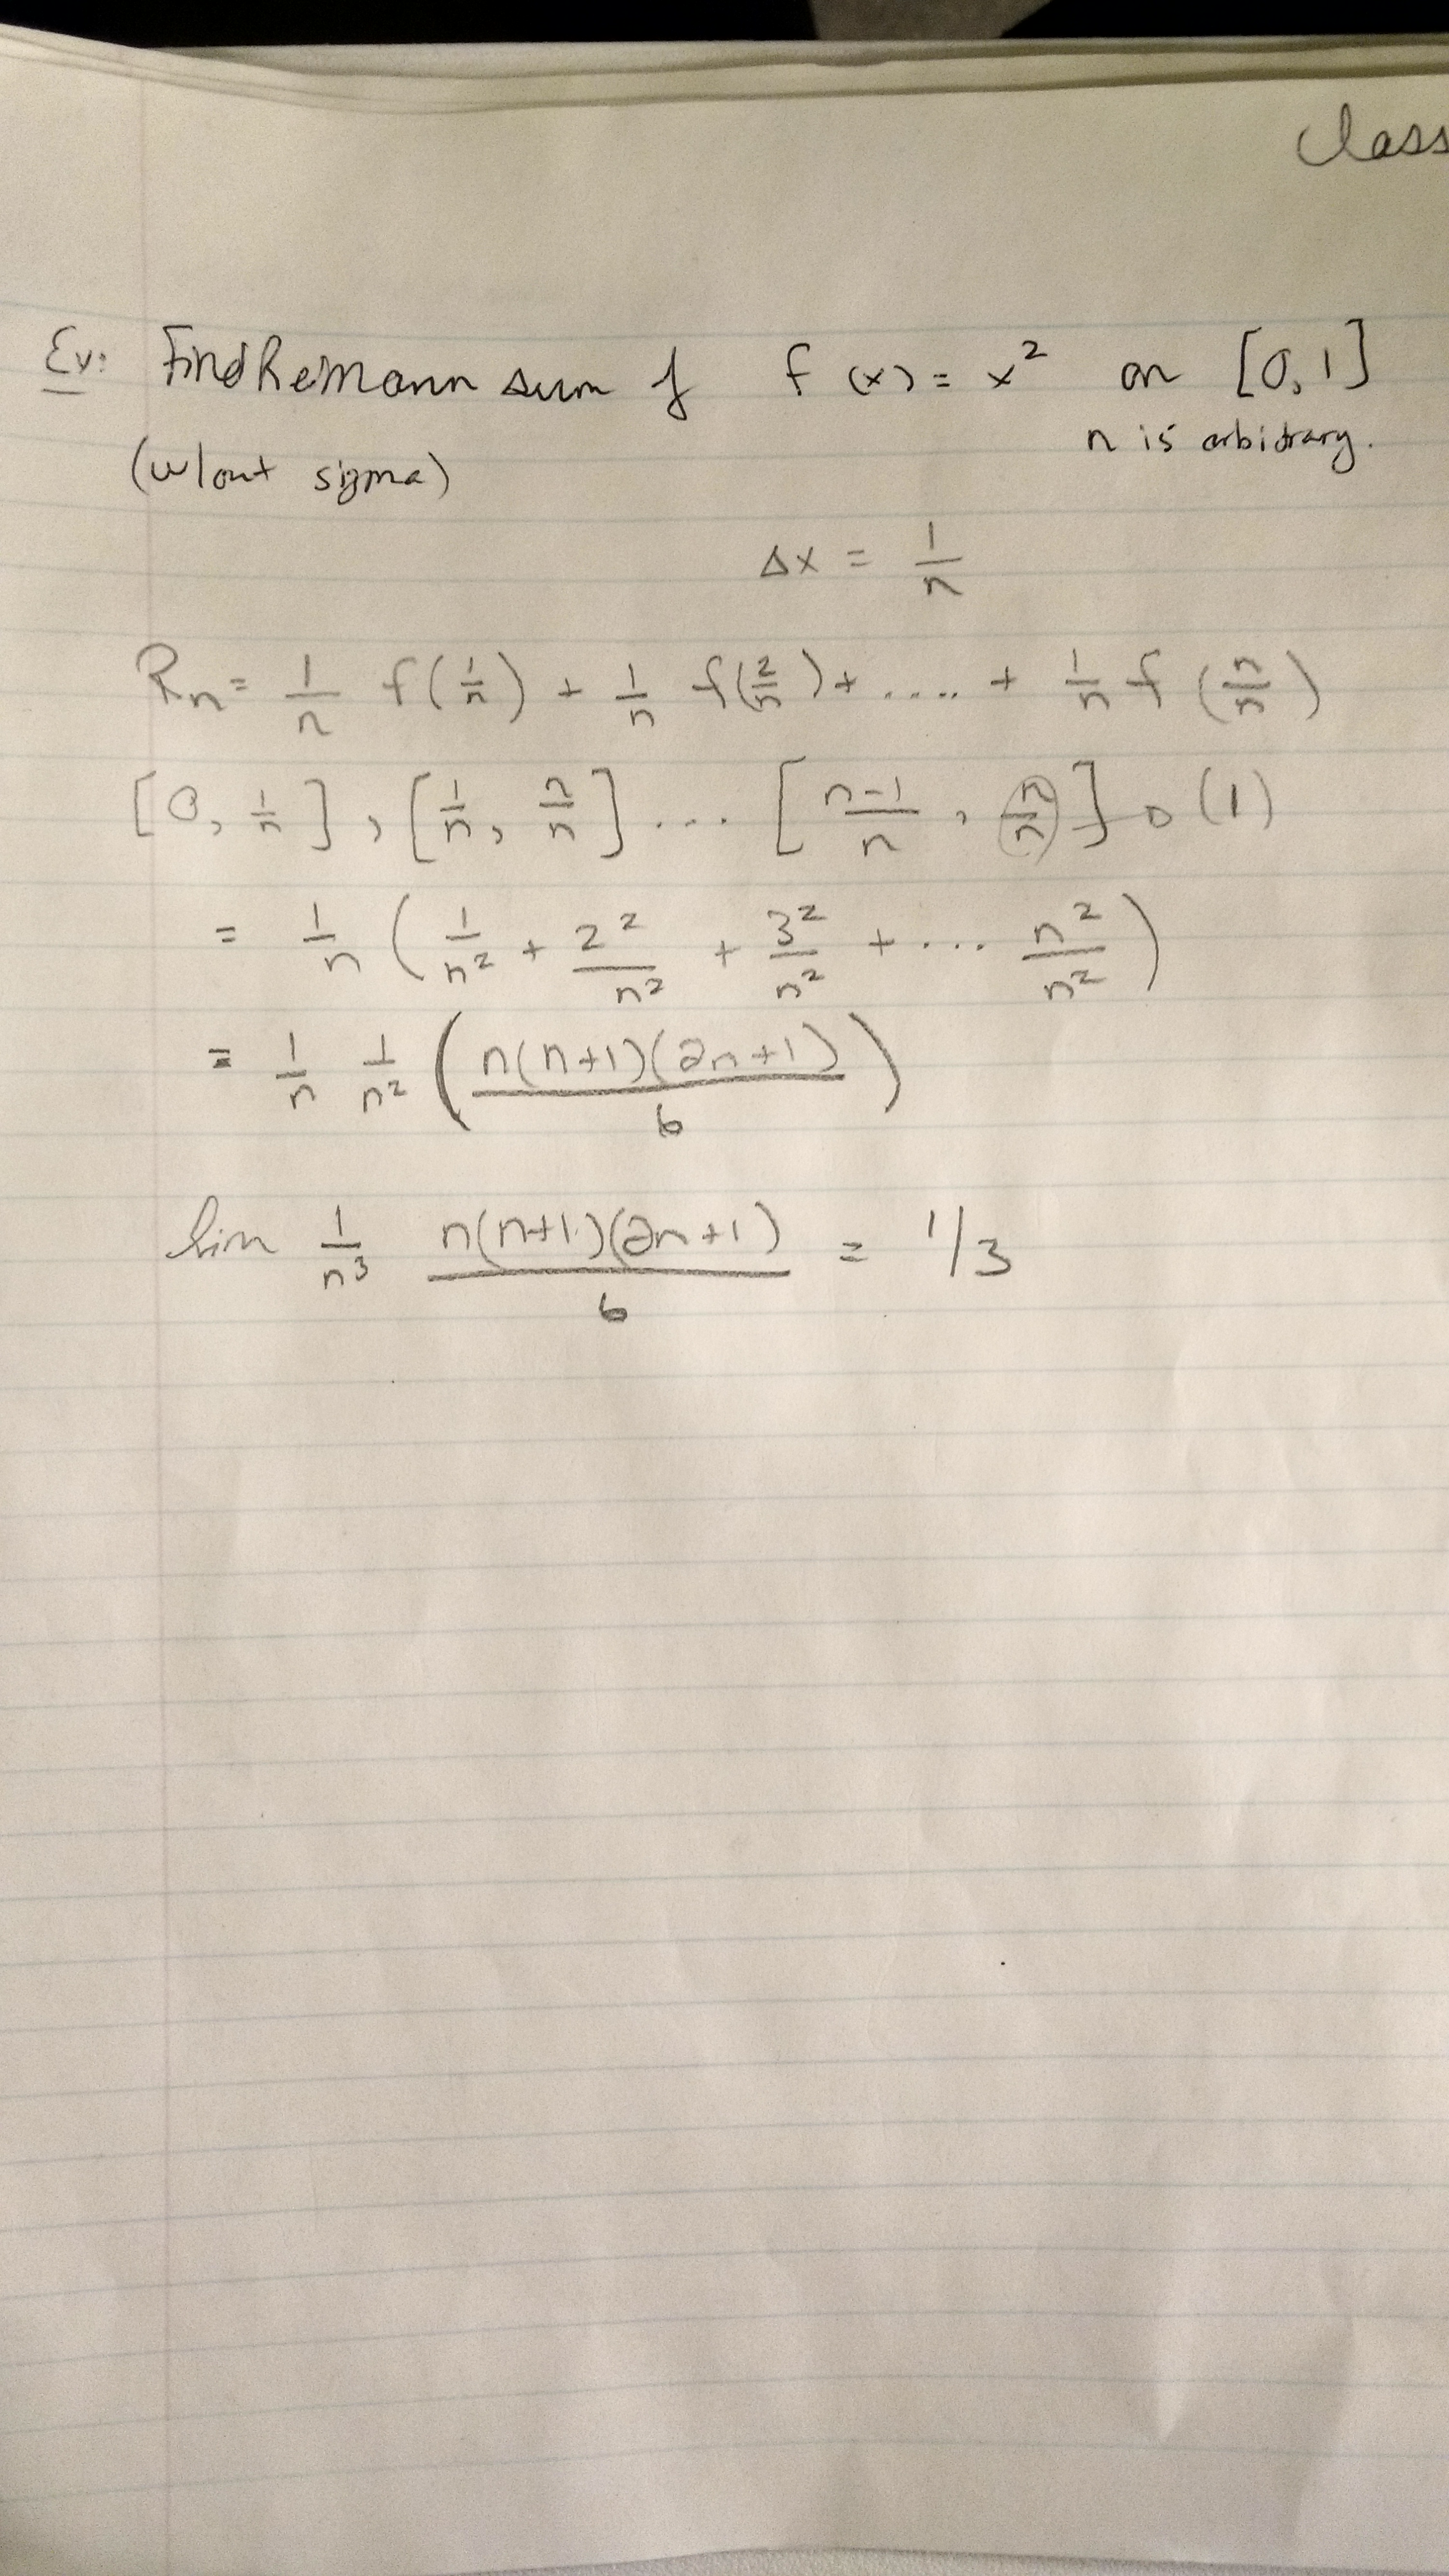 Class
Ex: Find Reimann sum of f(x) = x² on [0,1]
(w/out sigma) n is arbitrary.
Δx = 1/n
Rn = 1/n f(1/n) + 1/n f(2/n) + .... + 1/n f(n/n)
[0, 1/n], [1/n, n/n] ... [n-1/n, n/n] → (1)
= 1/n (1/n² + 2²/n² + 3²/n² + ... n²/n²)
= 1/n 1/n² (n(n+1)(2n+1)/6)
lim 1/n³ n(n+1)(2n+1)/6 = 1/3